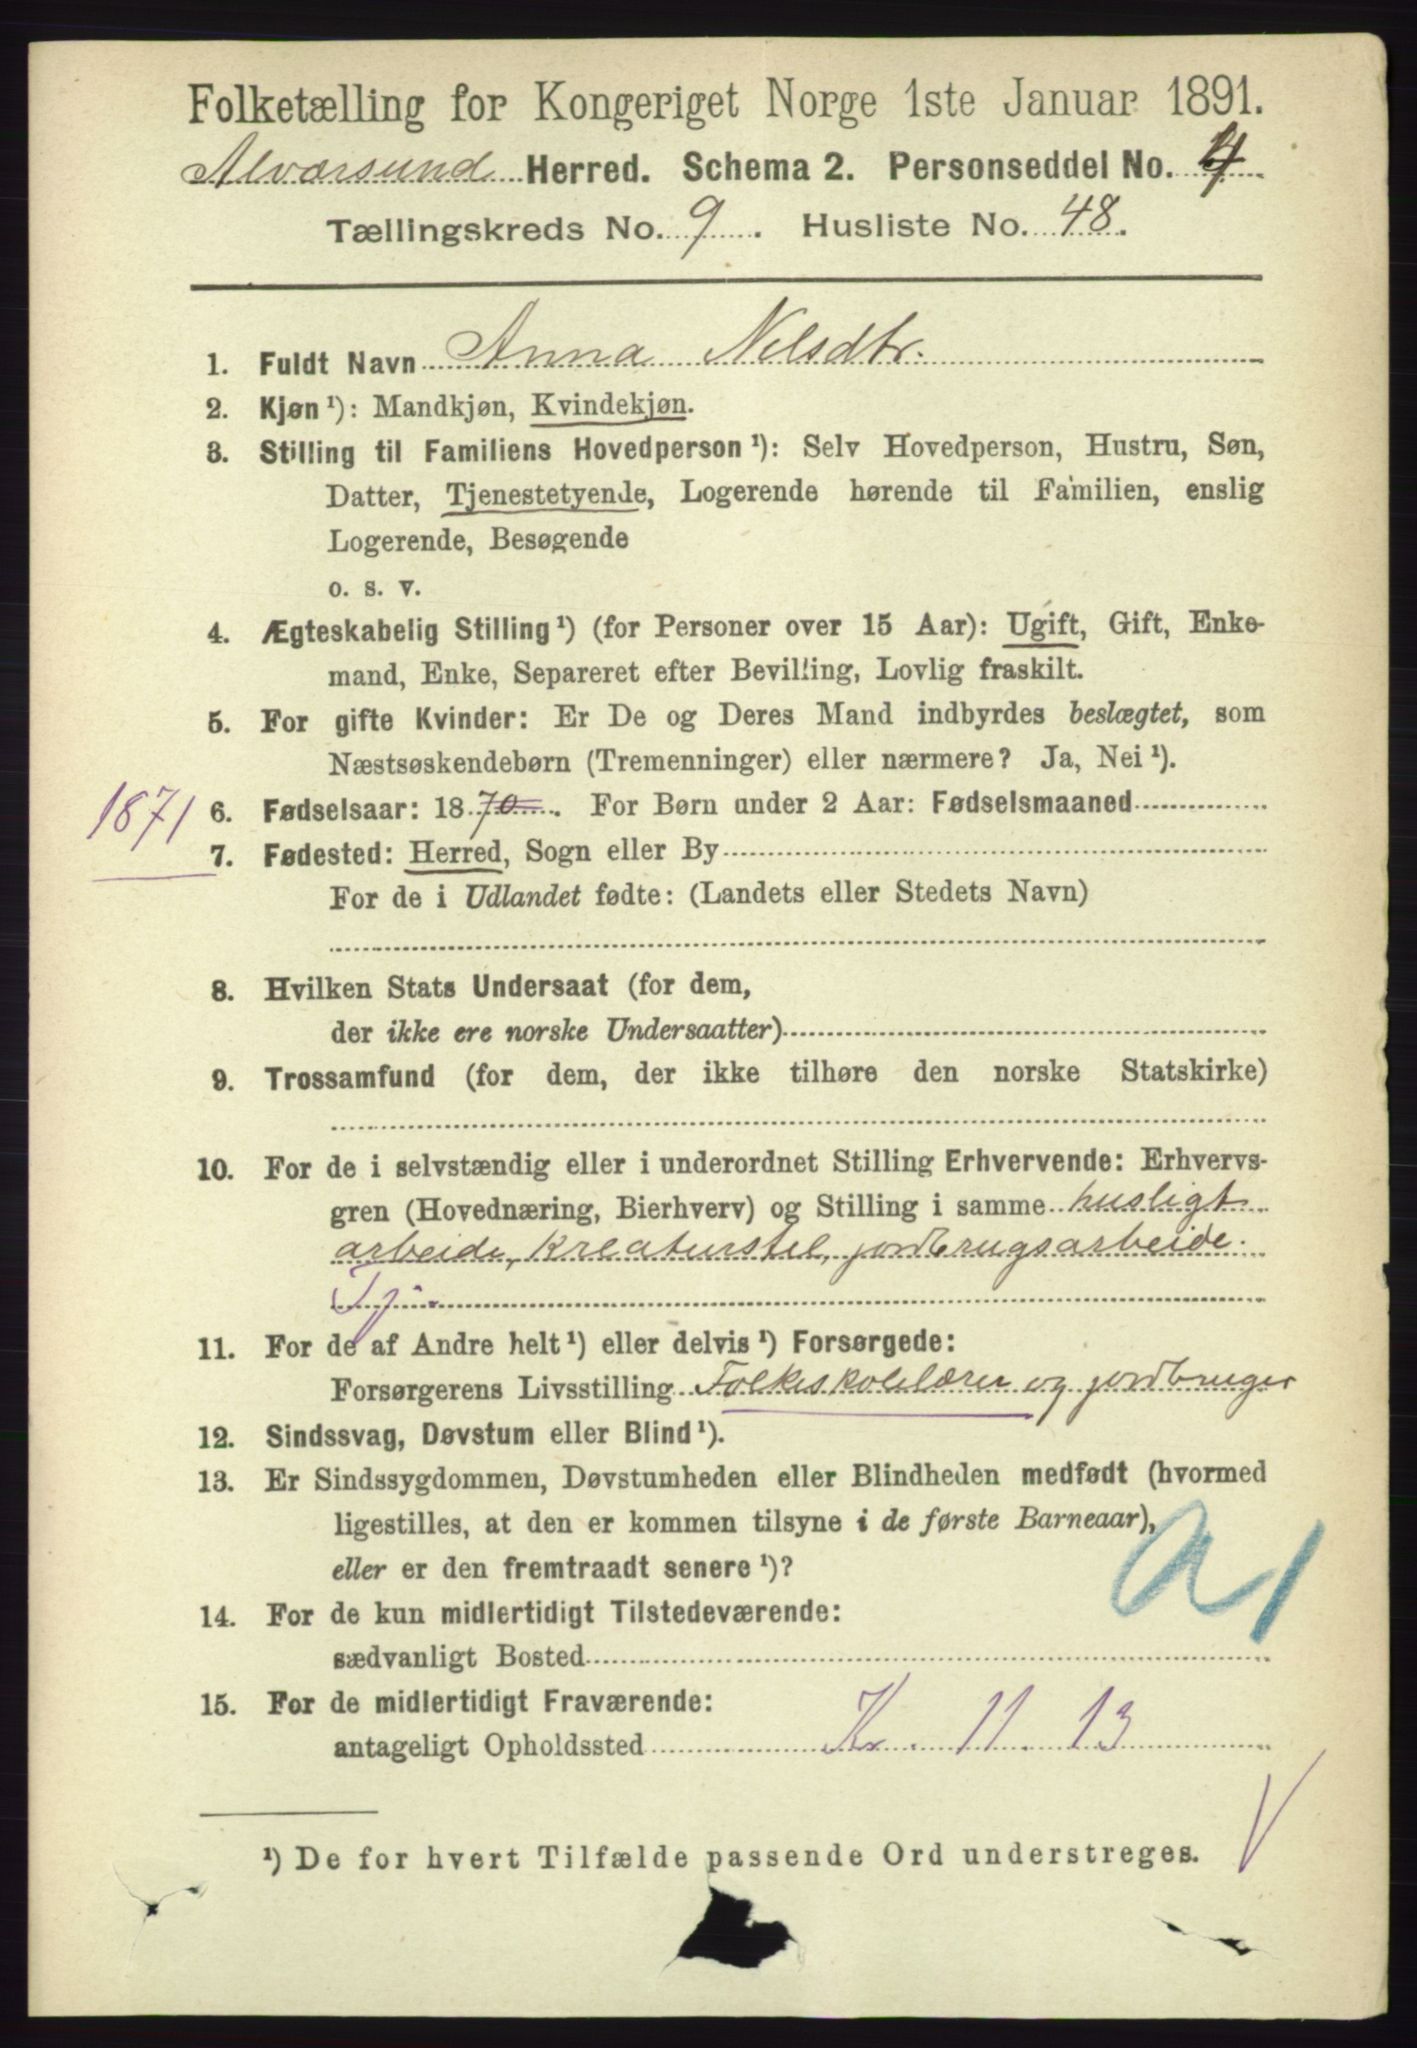 Folketælling for Kongeriget Norge 1ste Januar 1891.
Alversund Herred. Schema 2. Personseddel No. 4
Tællingskreds No. 9. Husliste No. 48.
1. Fuldt Navn Anna Nilsdtr.
2. Kjøn ¹): Mandkjøn, Kvindekjøn.
3. Stilling til Familiens Hovedperson ¹): Selv Hovedperson, Hustru, Søn,
Datter, Tjenestetyende, Logerende hørende til Familien, enslig
Logerende, Besøgende
o. s. v.
4. Ægteskabelig Stilling ¹) (for Personer over 15 Aar): Ugift, Gift, Enke-
mand, Enke, Separeret efter Bevilling, Lovlig fraskilt.
5. For gifte Kvinder: Er De og Deres Mand indbyrdes beslægtet, som
Næstsøskendebørn (Tremenninger) eller nærmere? Ja, Nei ¹).
1871
6. Fødselsaar: 1870. For Børn under 2 Aar: Fødselsmaaned
7. Fødested: Herred, Sogn eller By
For de i Udlandet fødte: (Landets eller Stedets Navn)
8. Hvilken Stats Undersaat (for dem,
der ikke ere norske Undersaatter)
9. Trossamfund (for dem, der ikke tilhøre den norske Statskirke)
10. For de i selvstændig eller i underordnet Stilling Erhvervende: Erhvervs-
gren (Hovednæring, Bierhverv) og Stilling i samme husligt
arbeide, kreaturstel, jordbrugsarbeide.
Tj.
11. For de af Andre helt ¹) eller delvis ¹) Forsørgede:
Forsørgerens Livsstilling Folkeskolelærer og jordbruger
12. Sindssvag, Døvstum eller Blind ¹).
13. Er Sindssygdommen, Døvstumheden eller Blindheden medfødt (hvormed
ligestilles, at den er kommen tilsyne i de første Barneaar),
eller er den fremtraadt senere ¹)?
a 1
14. For de kun midlertidigt Tilstedeværende:
sædvanligt Bosted
15. For de midlertidigt Fraværende:
antageligt Opholdssted Kr. 11. 13
¹) De for hvert Tilfælde passende Ord understreges.